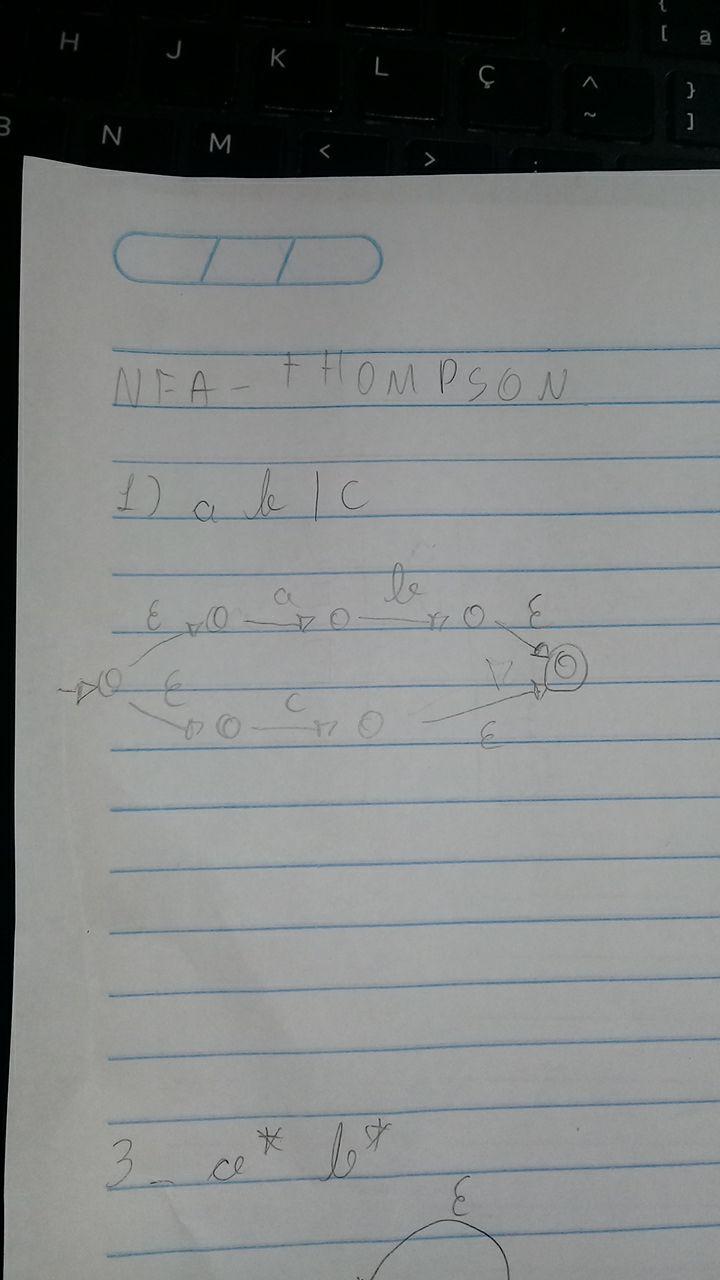 H J K L Ç ^ ~ { [ ª } ]
B N M < > :
NFA - tHOMPSON
1) a b | c
ε a b ε
ε c ε
3- a* b*
ε